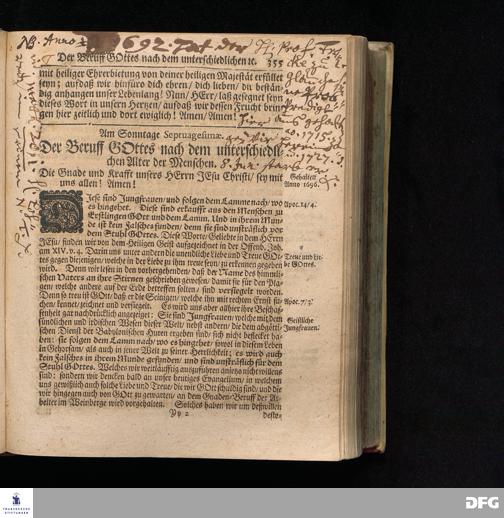 NB. Anno 1692. hat der Hr. Prof. Franke
Der Beruff GOttes nach dem unterschiedlichen ꝛc. 355
mit heiliger Ehrerbietung von deiner heiligen Majestät erfüllet
seyn; auf daß wir hinführo dich ehren/ dich lieben/ dir bestän-
dig anhangen unser Lebenlang! Nun/ HErr/ laß gesegnet seyn
dieses Wort in unsern Hertzen/ auf daß wir dessen Frucht brin-
gen hier zeitlich und dort ewiglich! Amen! Amen!
Am Sonntage Septuagesimæ.
Der Beruff GOttes nach dem unterschiedli-
chen Alter der Menschen.
Die Gnade und Krafft unsers HErrn JEsu Christi/ sey mit
uns allen! Amen!
Gehalten
Anno 1696.
DIese sind Jungfrauen/ und folgen dem Lamme nach/ wo
es hingehet. Diese sind erkaufft aus den Menschen zu
Erstlingen GOtt und dem Lamm. Und in ihrem Mun-
de ist kein Falsches funden/ denn sie sind unsträflich vor
dem Stuhl GOttes. Diese Worte/ Geliebte in dem HErrn
JEsu/ finden wir von dem Heiligen Geist aufgezeichnet in der Offenb. Joh.
am XIV. v. 4. Darin uns unter andern die unendliche Liebe und Treue GOt-
tes gegen diejenigen/ welche in der Liebe zu ihm treue seyn/ zu erkennen gegeben
wird. Denn wir lesen in den vorhergehenden/ daß der Name des himmli-
schen Vaters an ihre Stirnen geschrieben gewesen/ damit sie für den Pla-
gen/ welche andere auf der Erde betreffen solten/ sind versiegelt worden.
Denn so treu ist GOtt/ daß er die Seinigen/ welche ihn mit rechtem Ernst su-
chen/ kennet/ zeichnet und versiegelt. Es wird uns aber allhier ihre Beschaf-
fenheit gar nachdrücklich angezeiget: Sie sind Jungfrauen/ welche mit dem
sündlichen und irdischen Wesen dieser Welt/ nebst andern/ die dem abgötti-
schen Dienst der Babylonischen Huren ergeben sind/ sich nicht beflecket ha-
ben: sie folgen dem Lamm nach/ wo es hingehet/ sowol in diesem Leben
in Gehorsam/ als auch in jener Welt zu seiner Herrlichkeit; es wird auch
kein Falsches in ihrem Munde gefunden/ und sind unsträflich für dem
Stuhl GOttes. Welches wir weitläuftig auszuführen anietzo nicht willens
sind: sondern wir dencken bald an unser heutiges Evangelium/ in welchem
uns gewißlich auch solche Liebe und Treue/ die wir GOtt schuldig sind/ und die
wir hingegen auch von GOtt zu gewarten/ an dem Gnaden-Beruff der Ar-
beiter im Weinberge wird vorgehalten. Solches haben wir um deßwillen
Yy 2 desto-
Apoc. 14/4.
Treue und Lie-
be GOttes.
Apoc. 7/3.
Geistliche
Jungfrauen.
FRANCKESCHE
STIFTUNGEN
DFG